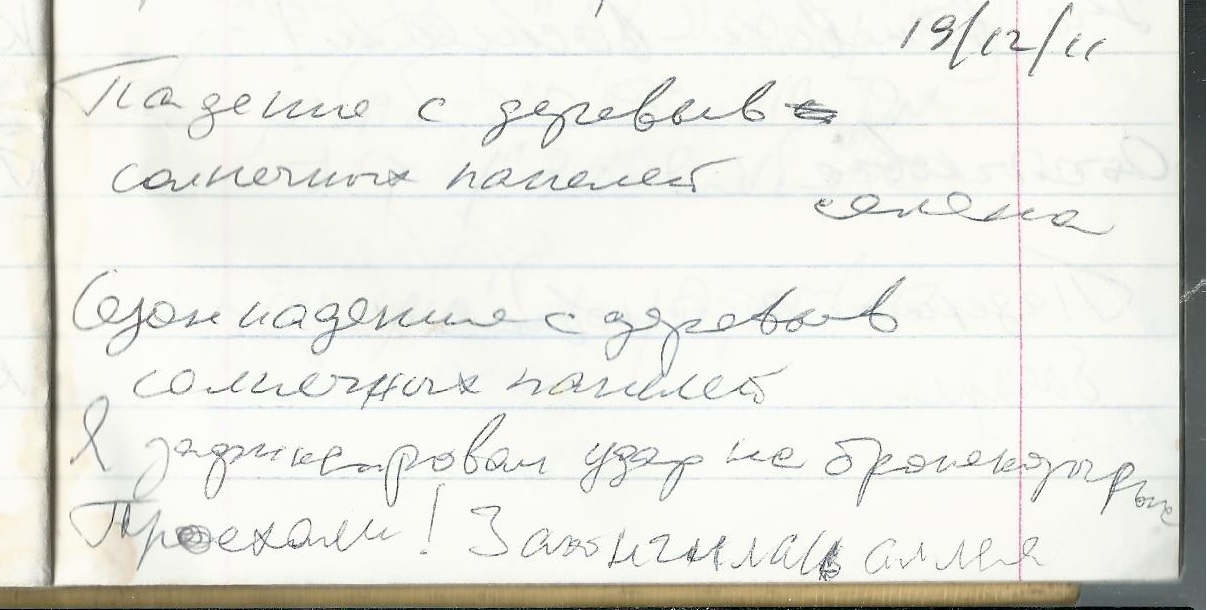 19/12/11
Падение с деревьев
солнечных панелей
елена
Сезон падения с деревьев
солнечных панелей
Я зафиксировал удар на бронекозырьке
Проехали! Закончилась аллея